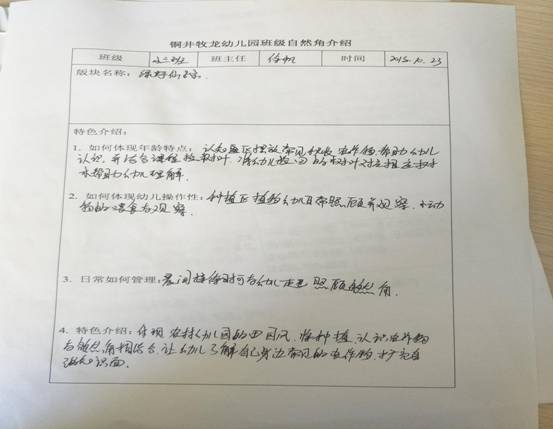 铜井牧龙幼儿园班级自然角介绍
班级 小三班 班主任 时间 2015.10.23
版块名称：
特色介绍：
1、如何体现年龄特点：认知区正摆放常见秋收农作物，帮助幼儿
认识，并结合课程捡树叶，请幼儿捡回的树叶对应相应树
木帮助幼儿理解。
2、如何体现幼儿操作性：种植区植物幼儿日常照顾并观察，小动
物的喂食与观察。
3、日常如何管理：晨间接待时可与幼儿走进照顾自然角。
4、特色介绍：体现农村幼儿园的田园风，将种植、认识农作物
与自然角相结合，让幼儿了解自己身边常见的农作物，扩充自
知识面。